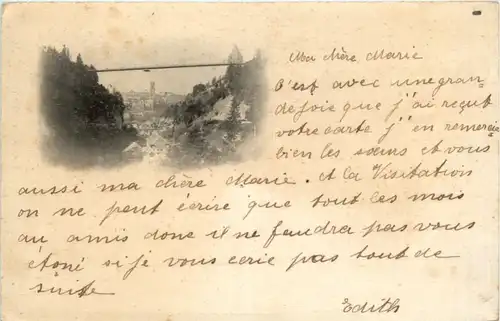 Ma chère Marie
C'est avec une gran-
de joie que j'ai reçut
votre carte j'en remercie
bien les sœurs et vous
aussi ma chère Marie. et la Visitation
on ne peut écrire que tout les mois
au amis donc il ne faudra pas vous
étoné si je vous ecrie pas tout de
suite
Edith